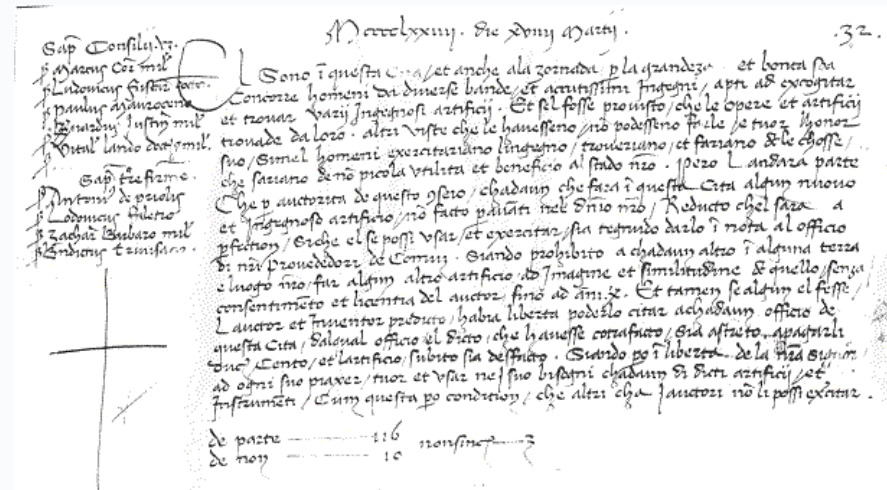 Mcccclxxiiii. die xviiii Martii.
.32.
Sap. Consilii
Marcus Cor. mil.
Ludovicus
Paulus Mauroceno
mil.
Vital lando doct. mil.
Sap. t.re firme.
Antoni' de priolis
Lodovicus faletro
Zachar. Barbaro mil.
Bndictus trivisano
El Sono ĩ questa Cita / et anche ala zornada p la grandeza et bonta soa
Concorre homeni da diverse bande / et accutissimi Ingegni, apti ad excogitar
et trovar varii Ingegnosi artificii. Et sel fosse provisto, che le opere et artificii
trovade da loro, altri viste che le havesseno, nõ podesseno farle / e tuor l honor
suo, Simel homeni exercitariano lingegno, troveriano, et fariano de le chosse,
che sariano de nõ picola utilita et beneficio al stado nrõ. Pero L andara parte
Che p auctorita de questo 9seio, chadaun che fara ĩ questa Cita algun nuovo
et Ingegnoso artificio, nõ facto p avãti nel dñio nrõ, Reducto chel sara a
pfection, Siche el se possi usar, et exercitar, sia tegnudo darlo ĩ nota al officio
di nrĩ provededori de Comun. Siando prohibito a chadaun altro ĩ alguna terra
e luogo nrõ, far algun altro artificio, ad Imagine et similitudine de quello, senza
consentimento et licentia del auctor, fino ad ani x. Et tamen se algun el fesse,
L auctor et Inventor predicto, habia liberta poderlo citar a chadaun officio de
questa Cita, dal qual officio el dicto, che havesse cõtrafacto, Sia astreto, a pagarli
duc. Cento, et l artificio, subito sia desfacto. Siando po ĩ liberta de la nrã Signoria
ad ogni suo piaxer, tuor et usar ne i suo bisogni chadaun di dicti artificii, et
Instrumẽti, Cum questa po condition, che altri cha i auctori nõ li possi exercitar.
de parte 116
de non 10
non sinc. 3